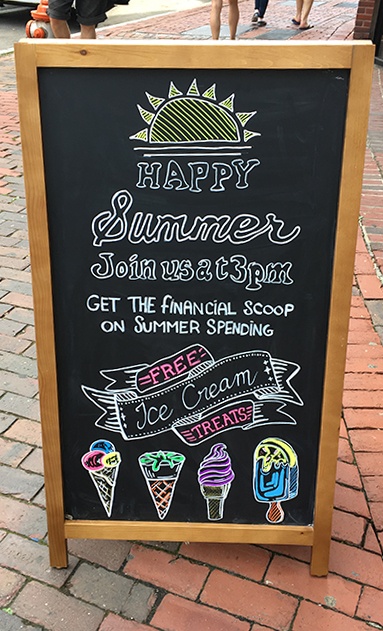 HAPPY
Summer
Join us at 3pm
GET THE FINANCIAL SCOOP
ON SUMMER SPENDING
FREE
Ice Cream
TREATS